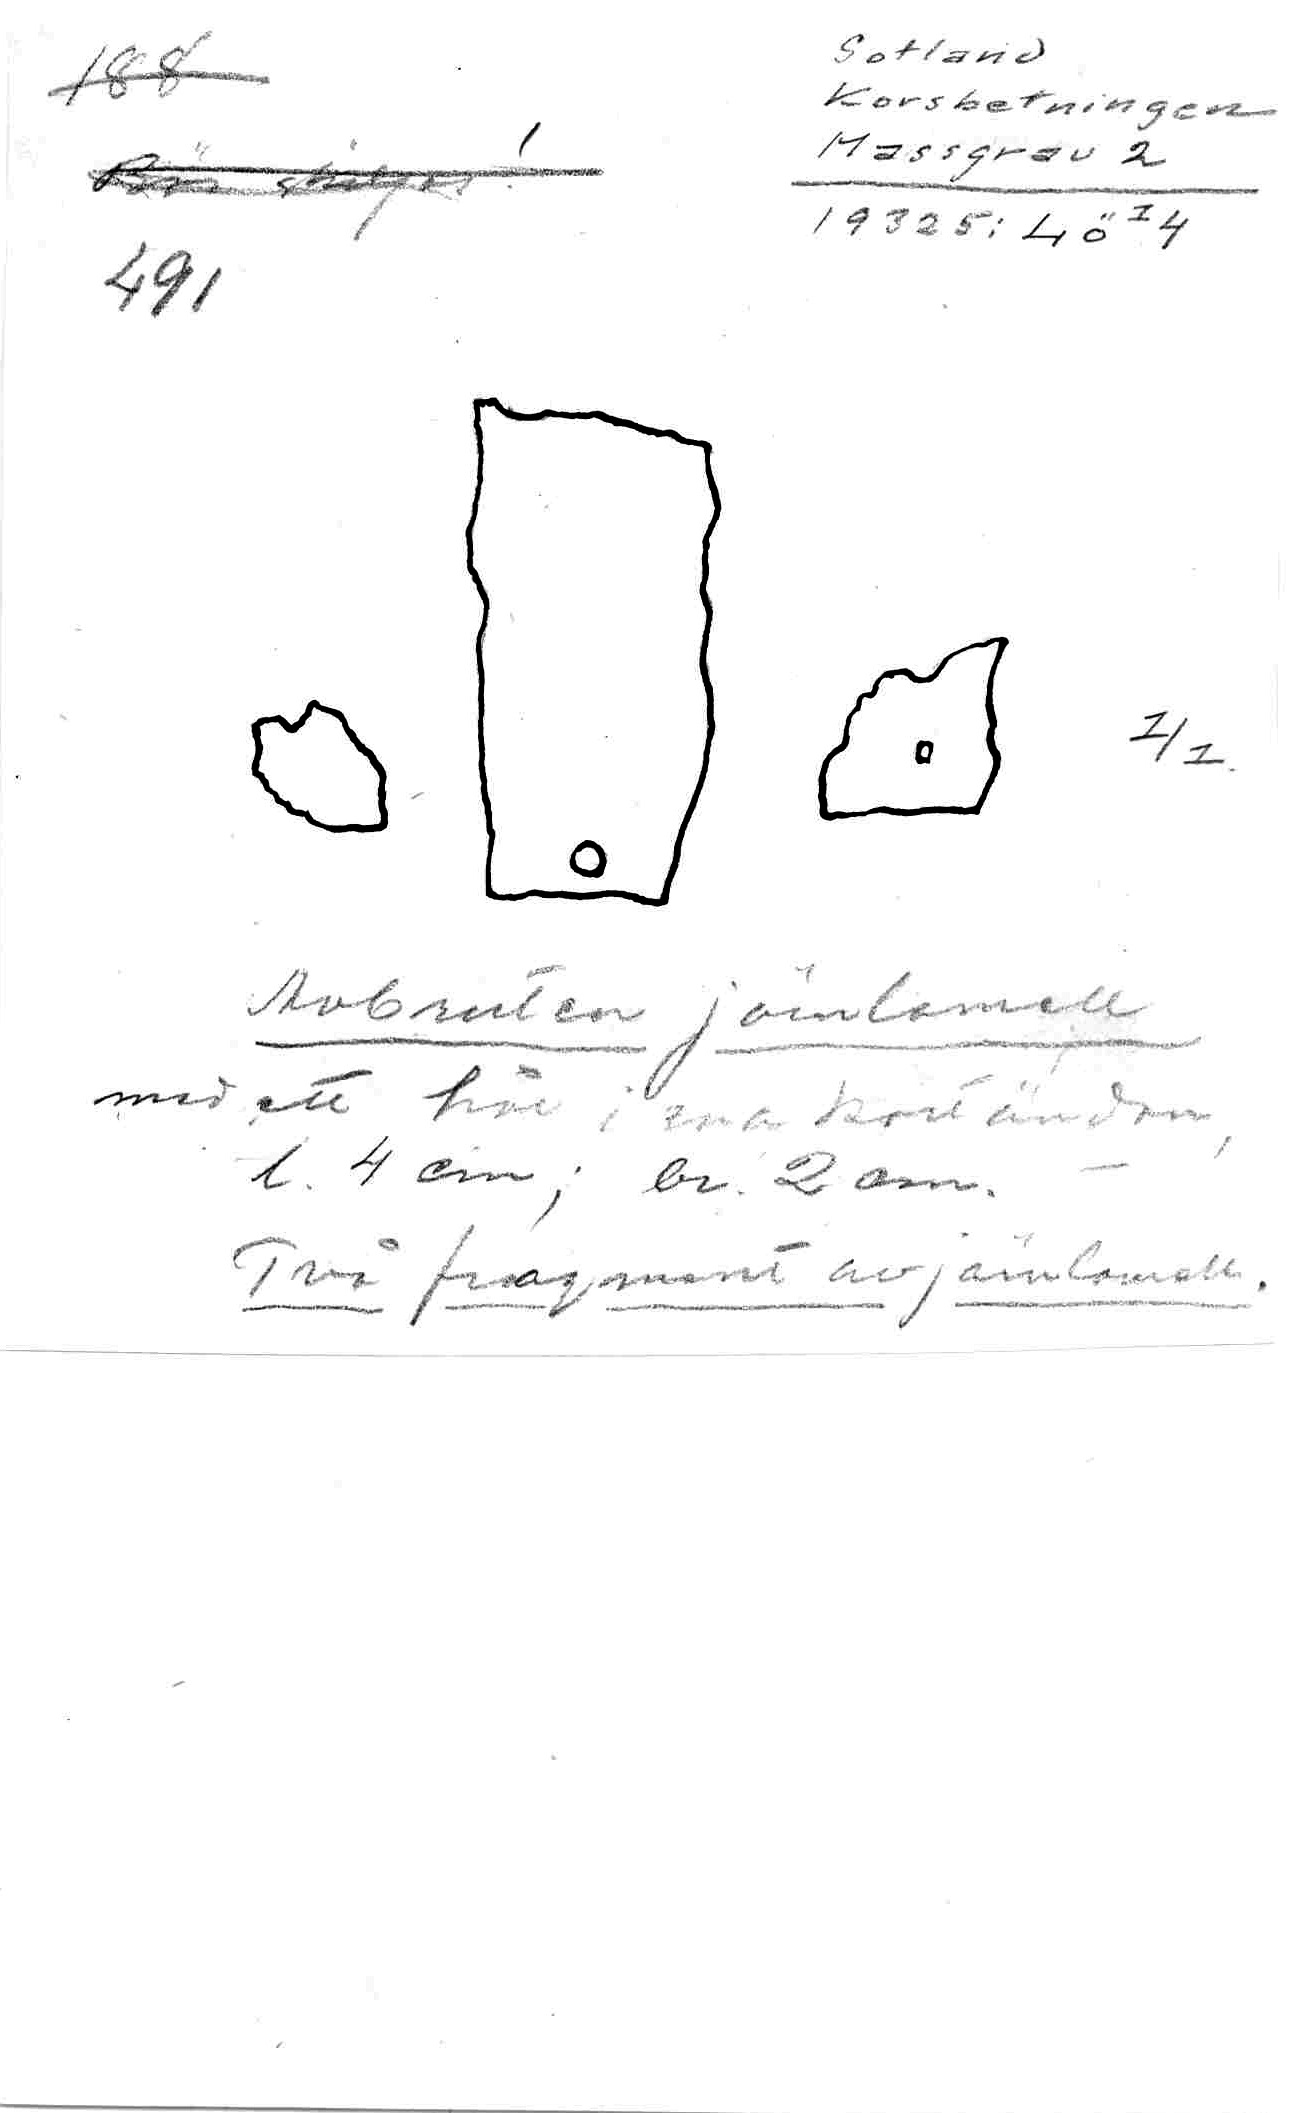 188
Gotland
Korsbetningen
Massgrav 2
Bör skiljas!
19325: Lö I 4
491
I/I.
Avbruten järnlamell
med ett hål i ena kortändan,
l. 4 cm; br. 2 cm. —
Två fragment av järnlamell.